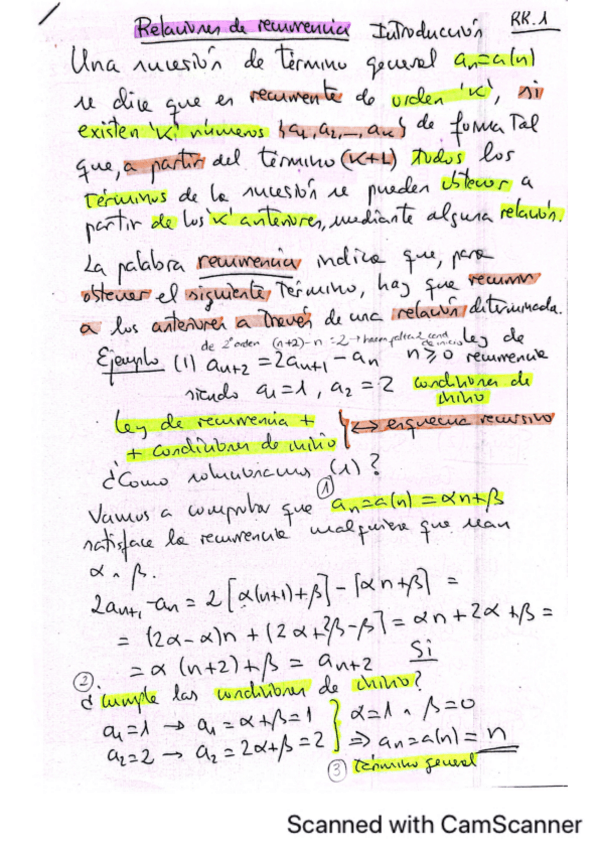 Relaciones de recurrencia Introducción RR.1
Una sucesión de término general an=a(n)
se dice que es recurrente de orden 'K', si
existen 'K' números {a1,a2,...,ak} de forma tal
que, a partir del término (K+1) todos los
términos de la sucesión se pueden obtener a
partir de los 'K' anteriores, mediante alguna relación.
La palabra recurrencia indica que, para
obtener el siguiente término, hay que recurrir
a los anteriores a través de una relación determinada.
de 2º orden (n+2)-n=2 → hacen falta 2 cond de inicio
Ejemplo (1) an+2 = 2an+1 - an n≥0 Ley de recurrencia
siendo a1=1, a2=2 condiciones de inicio
Ley de recurrencia +
+ condiciones de inicio } ↔ esquema recursivo
¿Cómo solucionamos (1)?
Vamos a comprobar que ① an=a(n)=αn+β
satisface la recurrencia cualquiera que sean
α ∧ β.
2an+1-an = 2[α(n+1)+β]-[αn+β] =
= (2α-α)n + (2α+2β-β) = αn+2α+β =
= α(n+2)+β = an+2 Sí
② ¿Cumple las condiciones de inicio?
a1=1 → a1=α+β=1 } α=1 ∧ β=0
a2=2 → a2=2α+β=2 } ⇒ an=a(n)=n
③ término general
Scanned with CamScanner